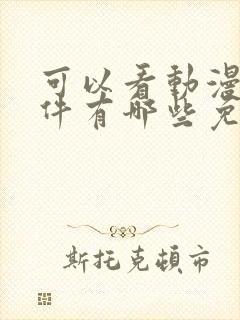 可以看動漫
件有哪些免
斯托克頓市